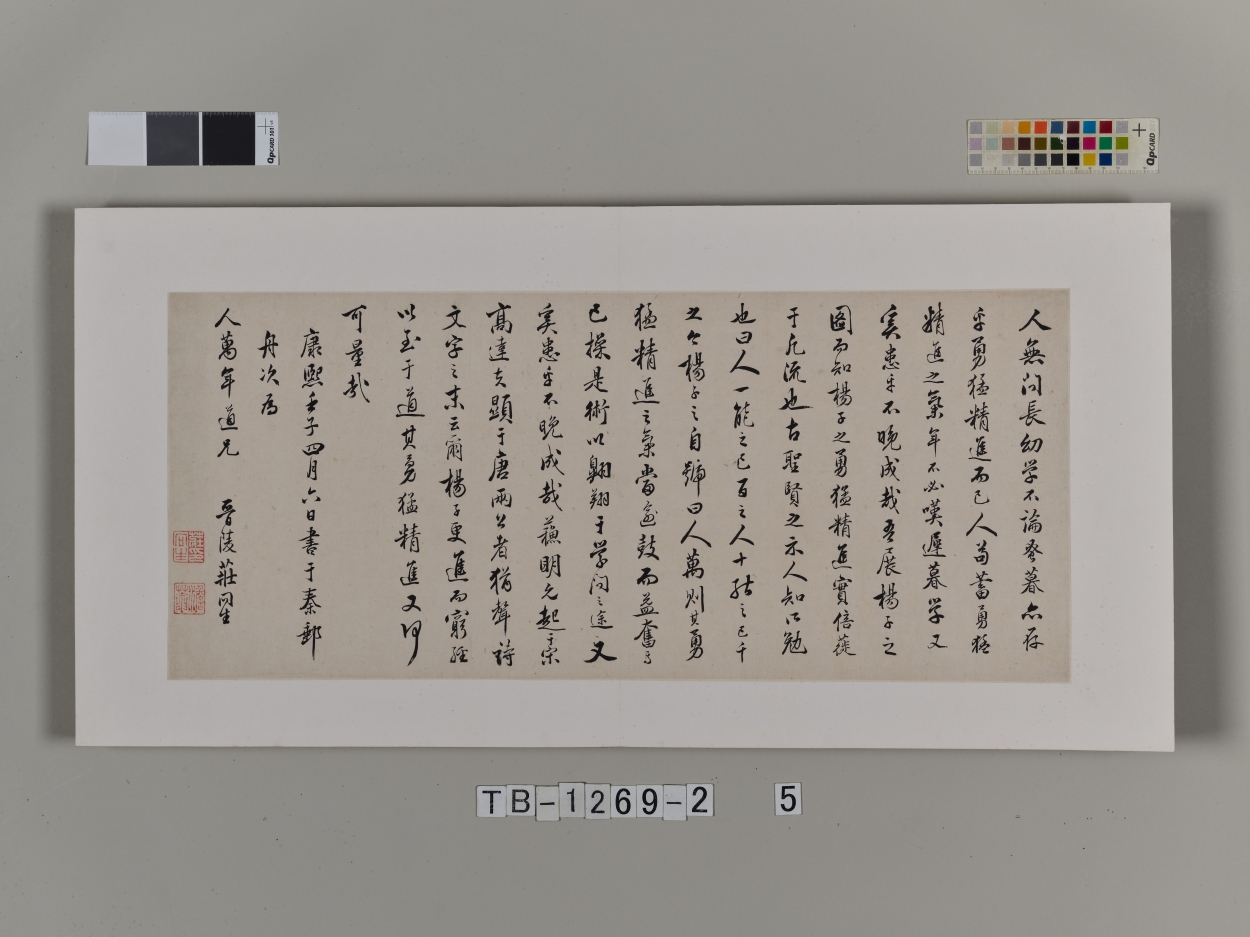 人無問長幼学不論蚤暮亦存
乎勇猛精進而已人苟蓄勇猛
精進之氣年不必嘆遲暮学又
奚患乎不晚成哉吾展楊子之
圖而知楊子之勇猛精進實倍蓰
于凡流也古聖賢之示人知所勉
也曰人一能之己百之人十能之己千
之今楊子之自號曰人萬則其勇
猛精進之氣當益鼓而益奮焉
已操是術以翱翔于学问之途又
奚患乎不晚成哉蘇明允起于宋
高達夫顯于唐兩公者猶聲詩
文字之末云爾楊子更進而窮經
以至于道其勇猛精進又何
可量哉
康熙壬子四月六日書于秦郵
舟次為
人萬年道兄 晉陵莊冏生
QPCARD 101
QPCARD
TB-1269-2 5